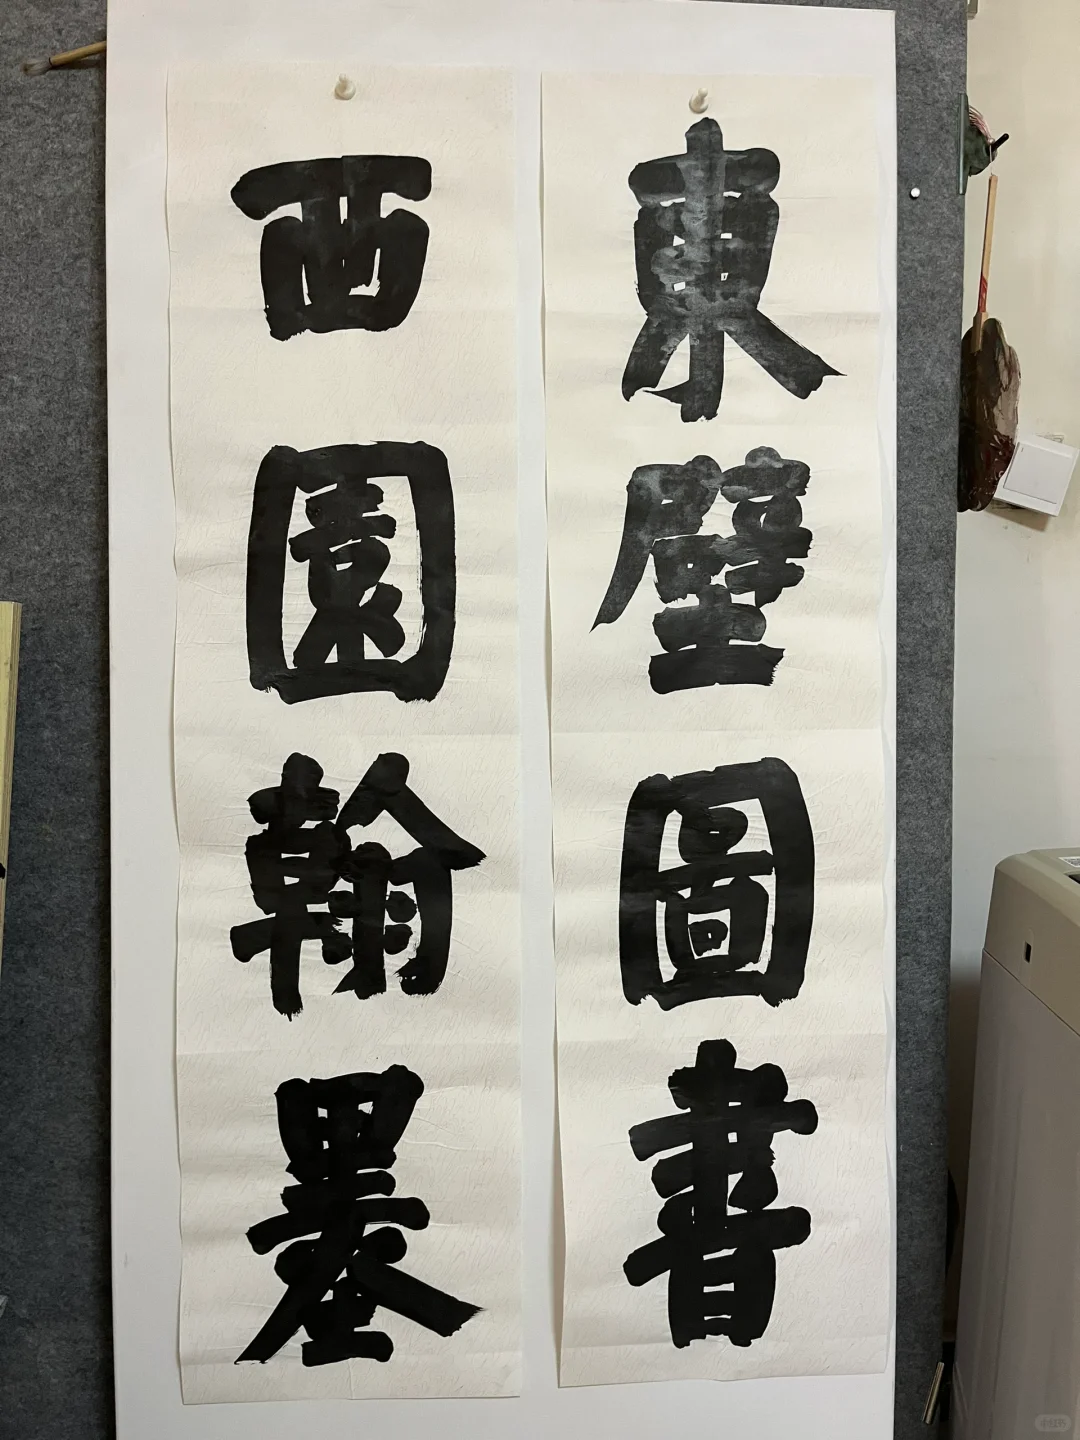 東壁圖書
西園翰墨